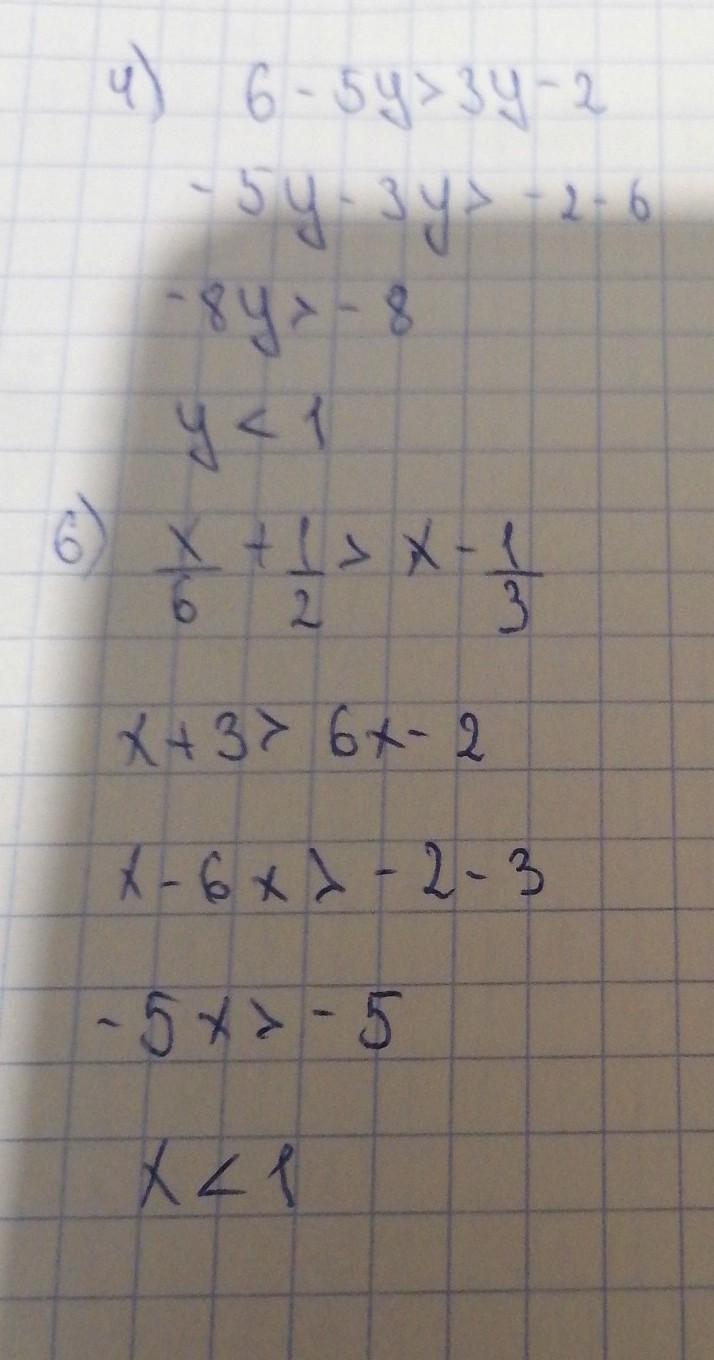 4) 6 - 5y > 3y - 2
- 5y - 3y > - 2 - 6
- 8y > - 8
y < 1
6) x/6 + 1/2 > x - 1/3
x + 3 > 6x - 2
x - 6x > - 2 - 3
- 5x > - 5
x < 1